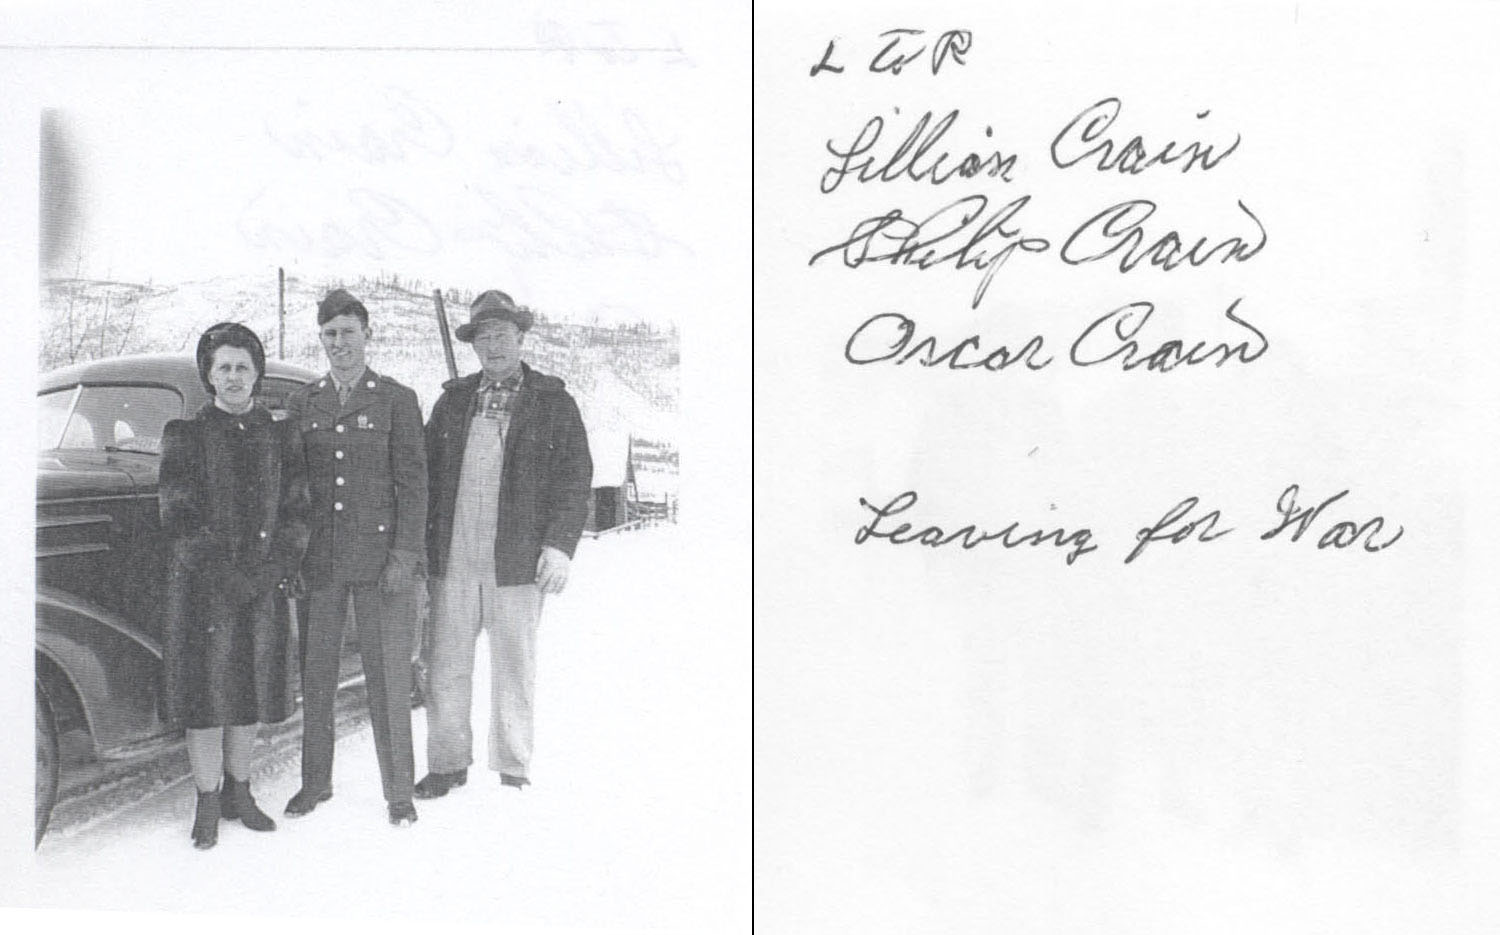 L to R
Lillian Crain
Philip Crain
Oscar Crain
Leaving for War